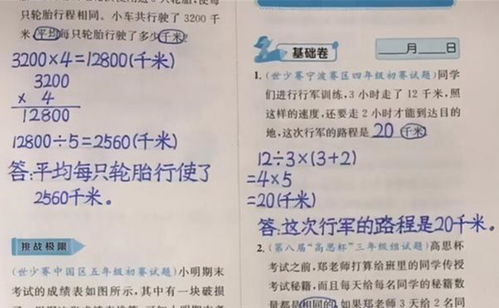 只轮胎行程相同。小车共行驶了 3200 千
米,平均每只轮胎行驶了多少千米?
3200×4=12800(千米)
3200
× 4
12800
12800÷5=2560(千米)
答:平均每只轮胎行使了
2560千米。
挑战极限
(世少赛中国区五年级初赛试题)小明期末
考试的成绩表如图所示,其中有一块破损
基础卷
月 日
1. (世少赛宁波赛区四年级初赛试题)同学
们进行行军训练,3 小时走了 12 千米,照
这样的速度,还要走 2 小时才能到达目的
地,这次行军的路程是 20 千米。
12÷3×(3+2)
=4×5
=20(千米)
答:这次行军的路程是20千米。
2. (第八届“高思杯”三年级组试题)高思杯
考试之前,郑老师打算给班里的同学传授
考试秘籍,而且每天给每名同学的秘籍数
量都是相同的,如果郑老师 5 天给 2 名同